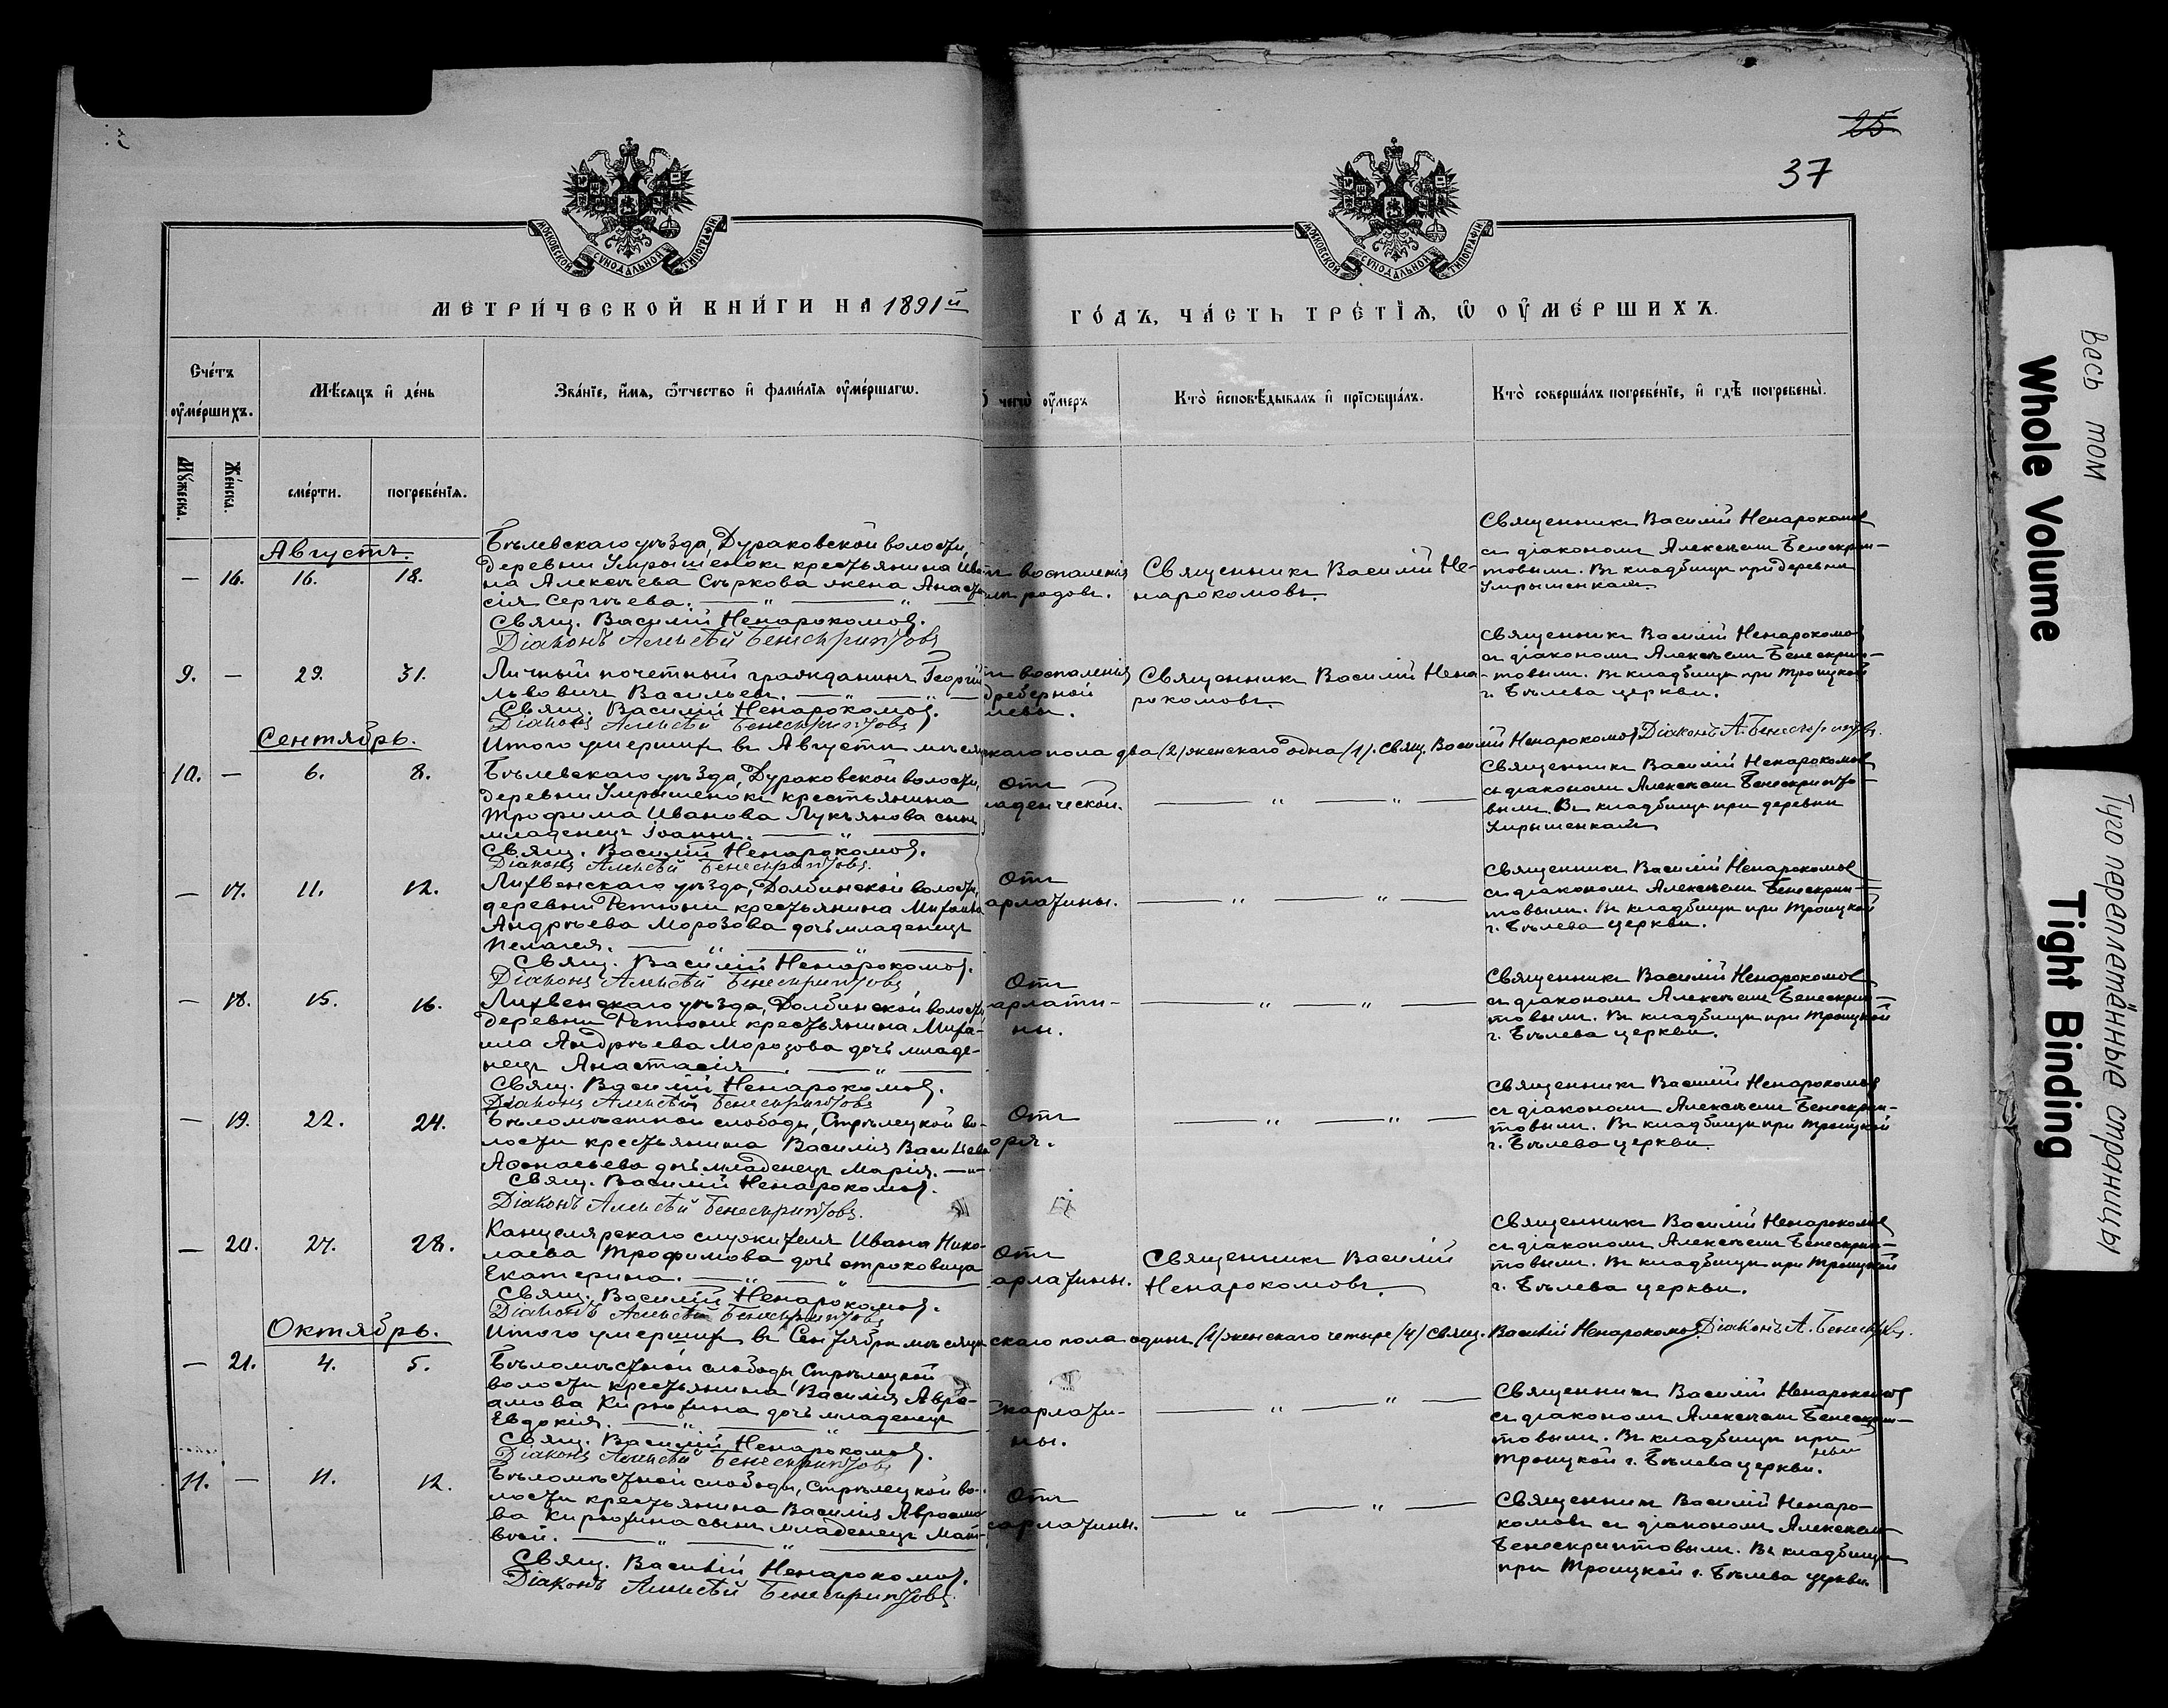 25
37
МОСКОВСКОЙ СѴНОДАЛЬНОЙ ТИПОГРАФІИ
МОСКОВСКОЙ СѴНОДАЛЬНОЙ ТИПОГРАФІИ
МЕТРИ́ЧЕСКОЙ КНИ́ГИ НА 1891й
ГО́ДЪ, ЧА́СТЬ ТРЕ́ТЇѦ, Ѡ ОУ҆МЕ́РШИХЪ.
Сче́тъ оу҆ме́ршихъ.
Мѣ́сяцъ и҆ де́нь
Зва́нїе, и҆́мѧ, ѻ҆́тчество и҆ фами́лїѧ оу҆ме́ршагѡ.
чегѡ̀ оу҆́меръ
Кто̀ и҆сповѣ́дывалъ и҆ прїѡбща́лъ.
Кто̀ соверша́лъ погребе́нїе, и҆ гдѣ̀ погребены̀.
Му́жеска.
Же́нска.
сме́рти.
погребе́нїѧ.
Августъ.
— 16. 16. 18.
Бѣлевскаго уѣзда, Дураковской волости,
деревни Умрышенокъ крестьянина Ива
на Алексѣева Сѣркова жена Анаста
сія Сергѣева. — " — " —
Свящ. Василій Ненарокомов.
Діаконъ Алексѣй Бенескриптовъ
воспаленія
родовъ.
Священникъ Василій Не-
нарокомовъ.
Священникъ Василій Ненарокомов
съ діакономъ Алексѣемъ Бенескрип-
товымъ. Въ кладбищѣ при деревни
Умрышенкахъ
9. — 29. 31.
Личный почетный гражданинъ Георгій
Львовичъ Васильевъ. — " — " —
Свящ. Василій Ненарокомов.
Діаконъ Алексѣй Бенескриптовъ
воспаленія
дреберной
левы.
Священникъ Василій Нена-
рокомовъ.
Священникъ Василій Ненарокомов
съ діакономъ Алексѣемъ Бенескрип-
товымъ. Въ кладбищѣ при Троицкой
г. Бѣлева церкви.
Сентябрь.
Итого умершихъ въ Августѣ мѣсяц
скаго пола два /2/ женскаго одна /1/. Свящ. Василій Ненарокомов. Діаконъ А. Бенескриптовъ.
10. — 6. 8.
Бѣлевскаго уѣзда, Дураковской волости,
деревни Умрышенокъ крестьянина
Трофима Иванова Лукьянова сынъ
младенецъ Іоаннъ. — " —
Свящ. Василій Ненарокомов.
Діаконъ Алексѣй Бенескриптовъ.
Отъ
ладенческой.
— " — " —
Священникъ Василій Ненарокомов
съ діакономъ Алексѣемъ Бенескрипто-
вымъ. Въ кладбищѣ при деревни
Умрышенкахъ
— 17. 11. 12.
Лихвенскаго уѣзда, Долбинской волости,
деревни Ретюни крестьянина Михаила
Андрѣева Морозова дочь младенецъ
Пелагея. — " —
Свящ. Василій Ненарокомов.
Діаконъ Алексѣй Бенескриптовъ
Отъ
арлатины.
— " — " —
Священникъ Василій Ненарокомов
съ діакономъ Алексѣемъ Бенескрип-
товымъ. Въ кладбищѣ при Троицкой
г. Бѣлева церкви.
— 18. 15. 16.
Лихвенскаго уѣзда, Долбинской волости,
деревни Ретюни крестьянина Миха-
ила Андрѣева Морозова дочь младе-
нецъ Анастасія. — " —
Свящ. Василій Ненарокомов.
Діаконъ Алексѣй Бенескриптовъ
Отъ
арлати-
ны.
— " — " —
Священникъ Василій Ненарокомов
съ діакономъ Алексѣемъ Бенескрип-
товымъ. Въ кладбищѣ при Троицкой
г. Бѣлева церкви.
— 19. 22. 24.
Бѣломѣстной слободы, Стрѣлецкой во-
лости крестьянина Василія Васильева
Аѳонасьева дочь младенецъ Марія. — " —
Свящ. Василій Ненарокомов.
Діаконъ Алексѣй Бенескриптовъ.
Отъ
оря.
— " — " —
Священникъ Василій Ненарокомов
съ діакономъ Алексѣемъ Бенескрип-
товымъ. Въ кладбищѣ при Троицкой
г. Бѣлева церкви.
— 20. 27. 28.
Канцелярскаго служителя Ивана Нико-
лаева Трофимова дочь отроковица
Екатерина. — " — " —
Свящ. Василій Ненарокомов.
Діаконъ Алексѣй Бенескриптовъ
Отъ
арлатины.
Священникъ Василій
Ненарокомовъ.
Священникъ Василій Ненарокомов
съ діакономъ Алексѣемъ Бенескрип-
товымъ. Въ кладбищѣ при Троицкой
г. Бѣлева церкви.
Октябрь.
Итого умершихъ въ Сентябрѣ мѣсяцѣ
скаго пола одинъ /1/ женскаго четыре /4/ Свящ. Василій Ненарокомов. Діаконъ А. Бенескр.
— 21. 4. 5.
Бѣломѣстной слободы, Стрѣлецкой
волости крестьянина Василія Авра-
амова Кирюхина дочь младенецъ
Евдокія. — " — " —
Свящ. Василій Ненарокомов.
Діаконъ Алексѣй Бенескриптовъ
Скарлати-
ны.
— " — " —
Священникъ Василій Ненарокомов
съ діакономъ Алексѣемъ Бенескрип-
товымъ. Въ кладбищѣ при
Троицкой г. Бѣлева церкви.
11. — 11. 12.
Бѣломѣстной слободы, Стрѣлецкой во-
лости крестьянина Василія Авраамо
ва Кирюхина сынъ младенецъ Мат-
вѣй. — " — " —
Свящ. Василій Ненарокомов.
Діаконъ Алексѣй Бенескриптовъ.
Отъ
карлатины.
— " — " —
Священникъ Василій Ненаро-
комовъ съ діакономъ Алексѣемъ
Бенескриптовымъ. Въ кладбищѣ
при Троицкой г. Бѣлева церкви.
Весь том
Whole Volume
Туго переплетённые страницы
Tight Binding